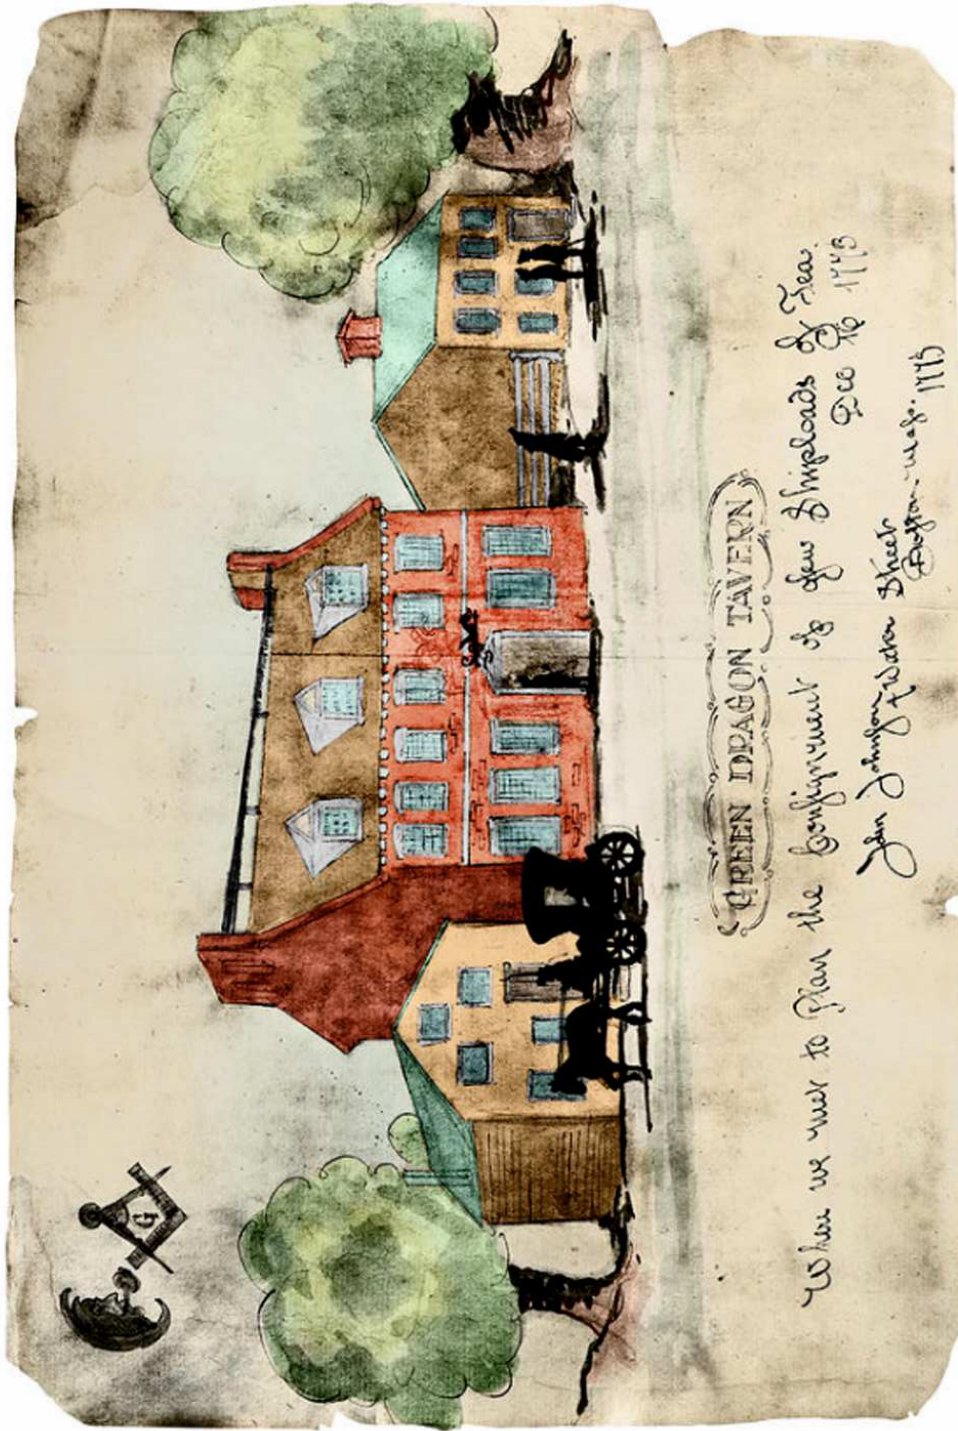 G
GREEN DRAGON TAVERN
Where we met to Plan the Consignment of a few Shiploads of Tea.
Dec 16 1773
John Johnson
4 Water Street
Boston. Mass. 1773